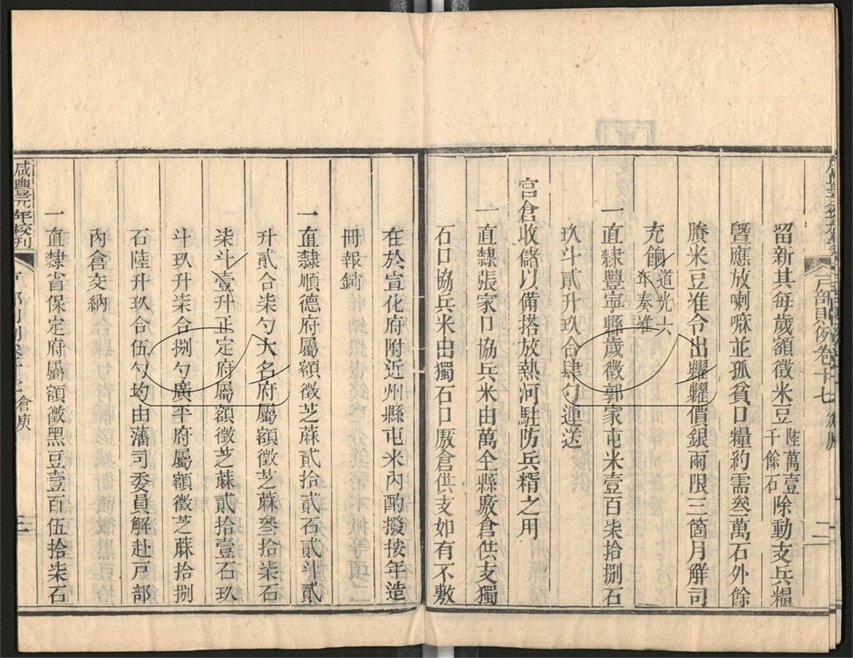 留新其每歲額徵米豆陸萬壹千餘石除動支兵糧
曁應放喇嘛並孤貧口糧約需叁萬石外餘
賸米豆准令出糶糶價銀兩限三箇月解司
充餉道光六年奏准
一直隸豐寧縣歲徵郭家屯米壹百柒拾捌石
玖斗貳升玖合肆勺運送
宮倉收儲以備搭放熱河駐防兵糈之用
一直隸張家口協兵米由萬全縣廒倉供支獨
石口協兵米由獨石口廒倉供支如有不敷
戶部則例卷十七
二
在於宣化府附近州縣屯米內酌撥按年造
冊報銷
一直隸順德府屬額徵芝蔴貳拾貳石貳斗貳
升貳合柒勺大名府屬額徵芝蔴叄拾柒石
柒斗壹升正定府屬額徵芝蔴貳拾壹石玖
斗玖升柒合捌勺廣平府屬額徵芝蔴拾捌
石陸升玖合伍勺均由藩司委員解赴戶部
內倉交納
一直隸省保定府屬額徵黑豆壹百伍拾柒石
咸豐元年校刊
倉庾
三